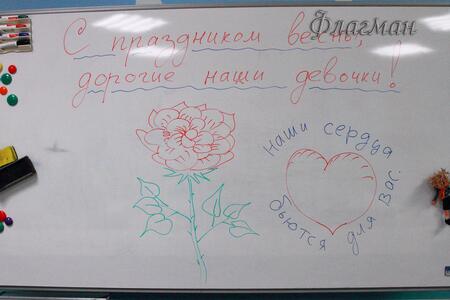 Флагман
С праздником весны,
дорогие наши девочки!
наши сердца
бьются для вас.